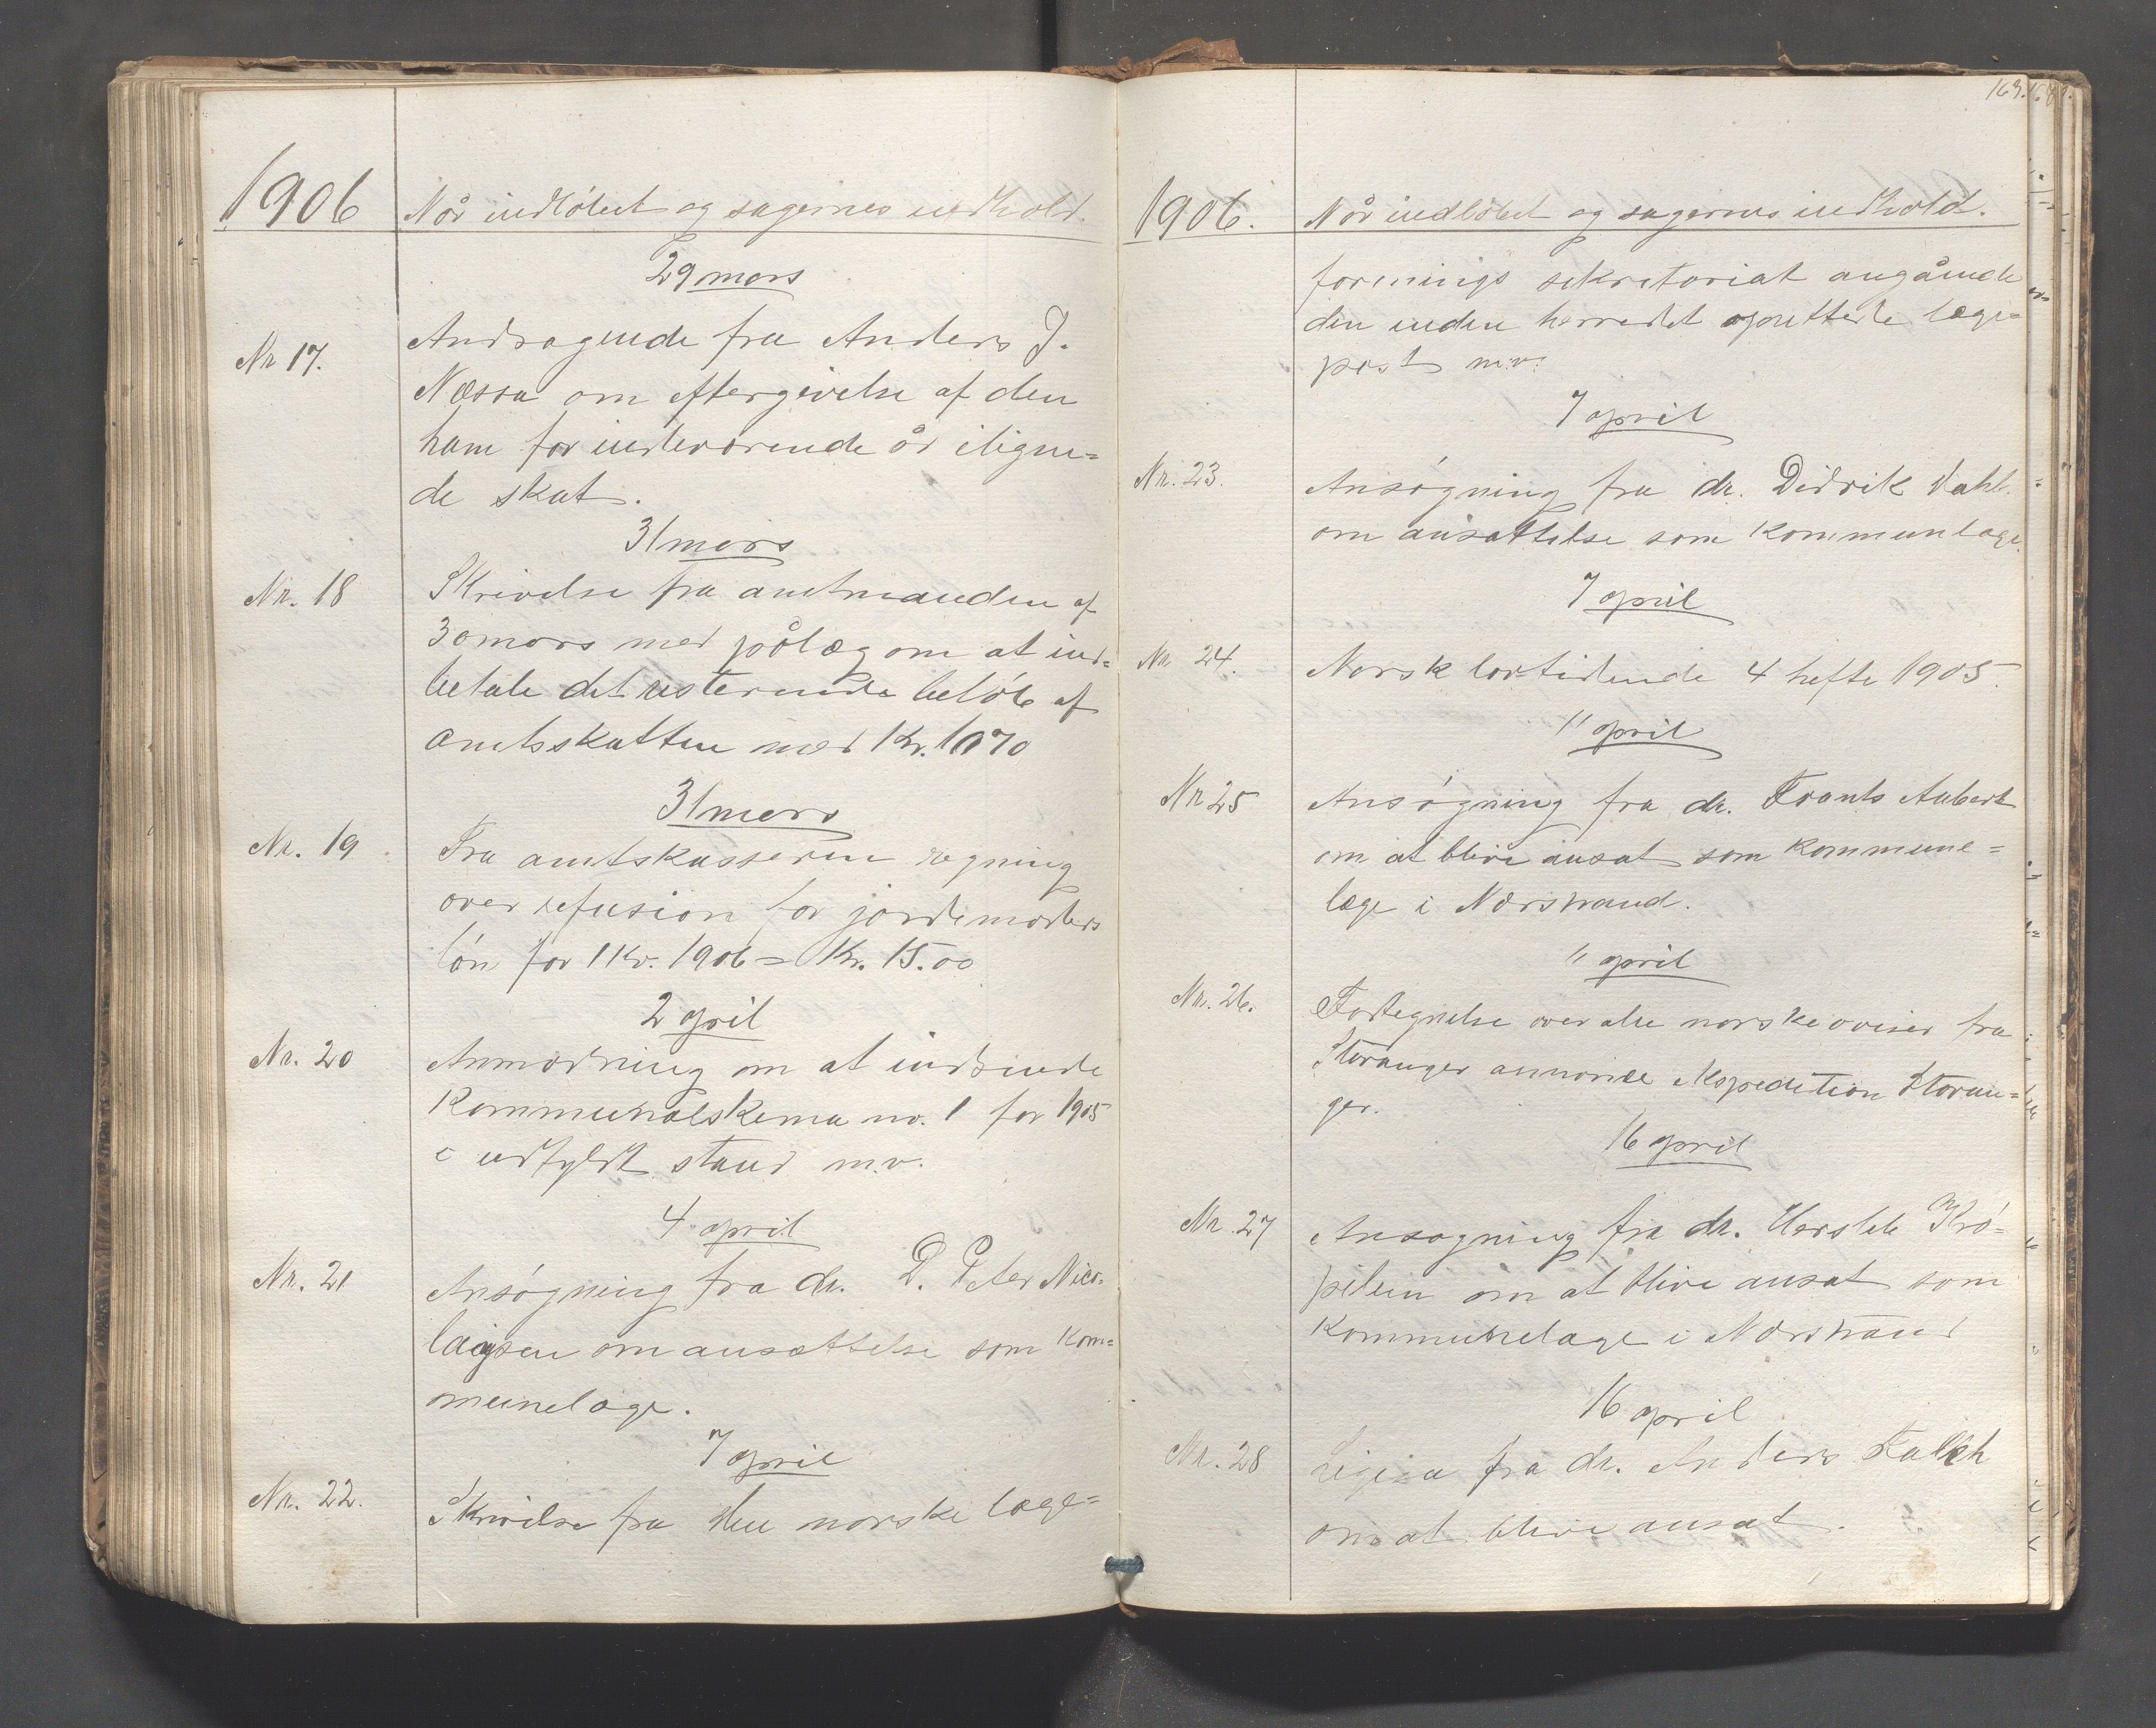 1906
Når indløbet og sagernes indhold.
29 mars
Nr 17.
Andragende fra Anders J.
Næssa om eftergivelse af den
ham for indeværende år iligne=
de skat.
31 mars
Nr. 18
Skrivelse fra amtmanden af
30 mars med pålæg om at ind=
betale det resterende beløb af
amtsskatten med Kr. 1070
31 mars
Nr. 19
Fra amtskasseren regning
over refusion for jordemoders
løn for 1 Kv. 1906 = Kr. 15.00
2 april
Nr. 20
Anmodning om at indsende
Kommunalskema no. 1 for 1905
i udfyldt stand m.v.
4 april
Nr. 21
Ansøgning fra dr. D. Peter Nico=
laysen om ansættelse som kom=
munelæge.
7 april
Nr. 22.
Skrivelse fra den norske læge=
169.
1906.
Når indløbet og sagernes indhold.
forenings sekretariat angående
den inden herredet oprettede læge=
post m.v.
7 april
Nr. 23.
Ansøgning fra dr. Didrik Dahl.
om ansættelse som kommunlæge.
7 april
Nr. 24.
Norsk lovtidende 4 hefte 1905.
11 april
Nr 25
Ansøgning fra dr. Frants Aubert
om at blive ansat som kommune=
læge i Nærstrand.
11 april
Nr. 26.
Fortegnelse over alle norske aviser fra
Stavanger annonce expedition Stavan=
ger.
16 april
Nr. 27
Ansøgning fra dr. Hersleb Krö=
pelien om at blive ansat som
kommunelæge i Nærstrand
16 april
Nr. 28
Ligesa fra dr. Anders Falkh
om at blive ansat.